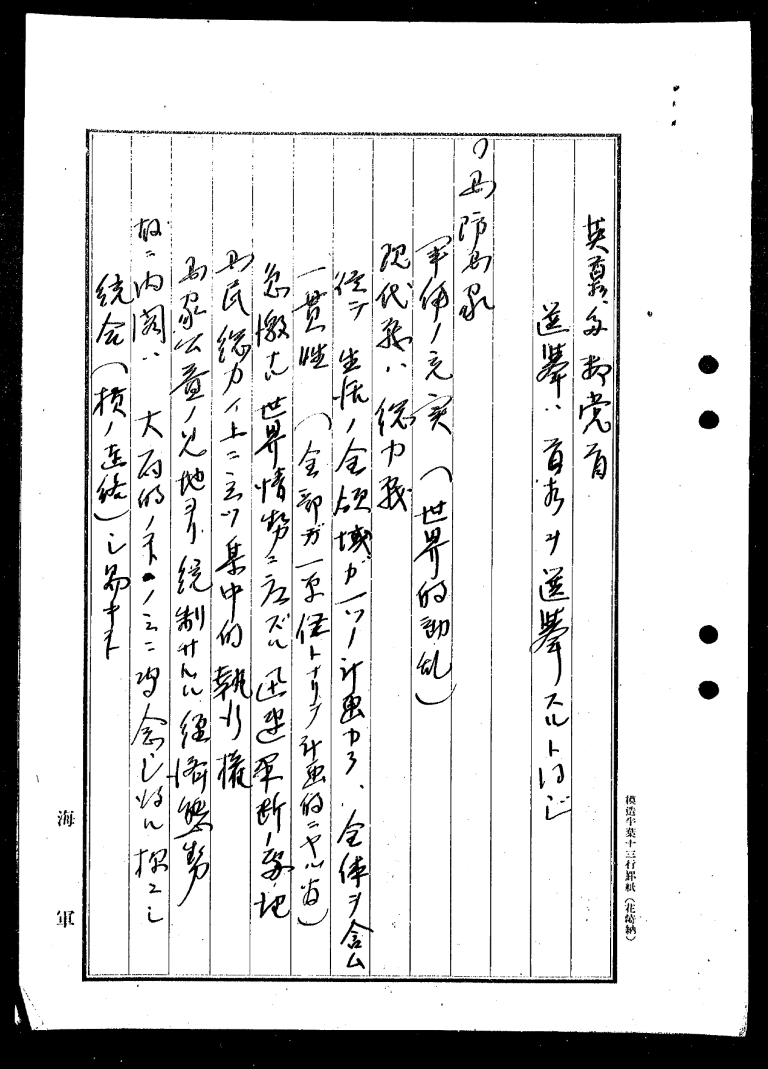 英首相ハ多数党首
選挙ハ首相ヲ選挙スルト同じ
国防国家
軍備ノ充実（世界的動乱）
現代戦ハ総力戦
従テ生活ノ全領域ガ一ツノ計画カラ、全体ヲ含ム
一貫性（全部ガ一単位トナリテ計画的ニヤル省）
急激ナル世界情勢ニ応ズル迅速果断ノ要
国民総力ノ上ニ立ツ集中的執行権
国家公益ノ見地ヨリ統制サルル経済態勢
故ニ内閣ハ大局的ノ ノミニ専念し得ル様ニし
統合（横ノ連絡）し易キト
海軍
模造半葉十三行罫紙（花崎納）